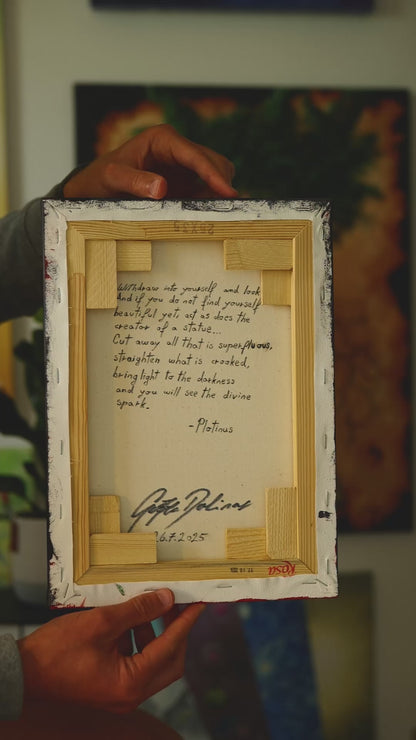 25X35
Withdraw into yourself and look
And if you do not find yourself
beautiful yet, act as does the
creator of a statue...
Cut away all that is superfluous,
straighten what is crooked,
bring light to the darkness
and you will see the divine
spark.
-Plotinus
Dolinar
26.7.2025
Rosa